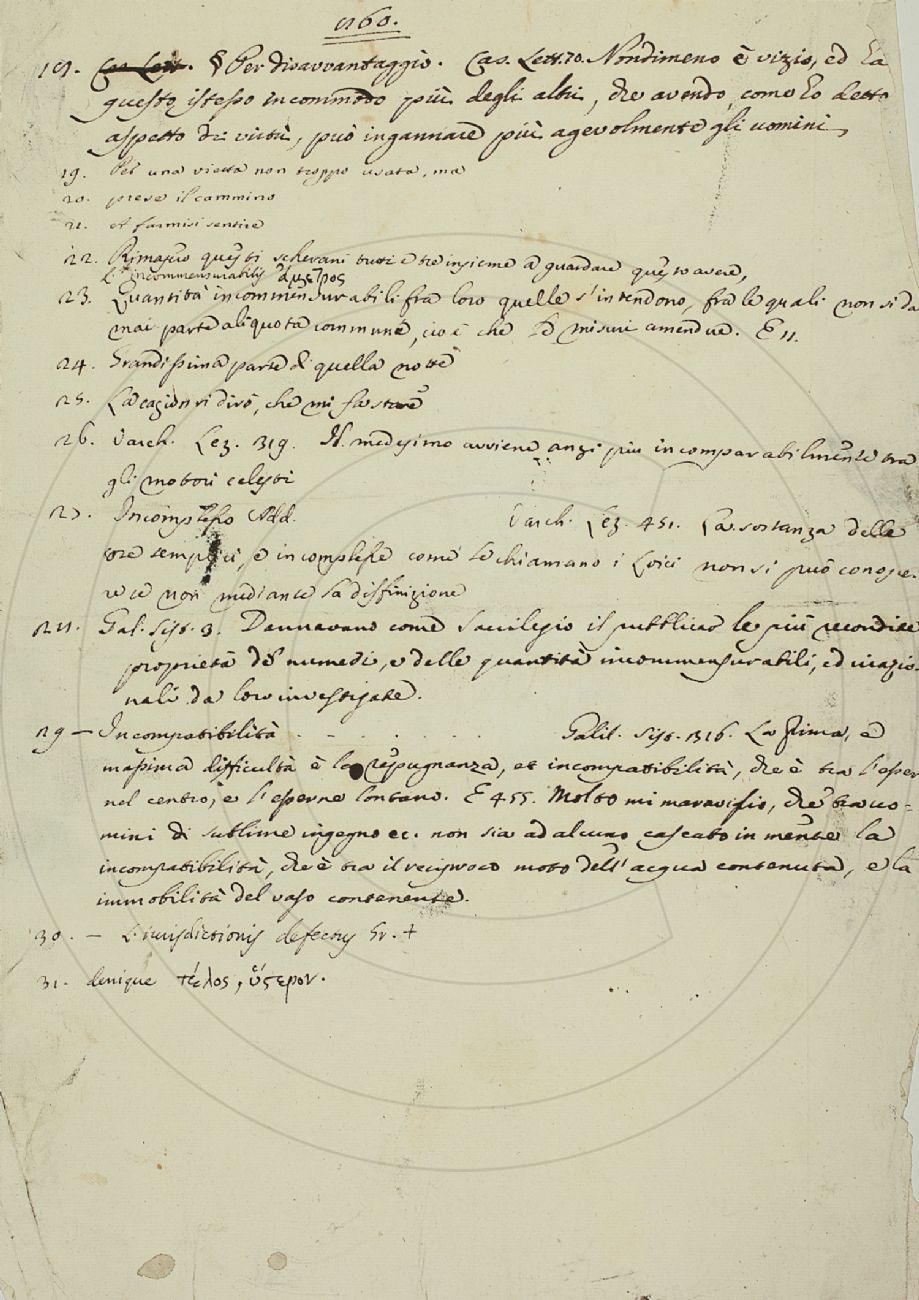 1160.
18. Cas. Lett. § Per disavvantaggio. Cas. Lett. 70. Nondimeno è vizio, ed ha
questo istesso incommodo più degli altri, che avendo, come ho detto
aspetto di virtù, può ingannare più agevolmente gli uomini
19. Per una vietta non troppo usata, ma
20. prese il cammino
21. et farmisi sentire
22. questi scherani tutti e tre insieme a guardare questo avere,
L. incommensurabilis ἄμετρος
23. Quantità incommensurabili fra loro quelle s'intendono, fra le quali non si da
mai parte aliquota commune, cioè che le misuri amendue. E 11.
24. Grandissima parte di quella notte
25. La cagion vi dirò, che mi fa stare
26. Varch. Lez. 319. Il medesimo avviene, anzi più incomparabilmente tra
gli motori celesti
27. Incomplesso Add. Varch. Lez. 451. La sostanza delle
cose semplici, e incomplesse come le chiamano i Loici non si può conosce-
re se non mediante la diffinizione
28. Gal. Sist. 3. Dannavano come Sacrilegio il pubblicar le più recondite
proprietà de' numeri, e delle quantità incommensurabili, ed irrazio-
nali da loro investigate.
29 — Incompatibilità . . . . . . Galil. Sist. 316. La prima, e
massima difficultà è la repugnanza, et incompatibilità, che è tra l'esser
nel centro, e l'esserne lontano. E 455. Molto mi maraviglio, che tra uo-
mini di sublime ingegno ec. non sia ad alcuno cascato in mente la
incompatibilità, che è tra il reciproco moto dell' acqua contenuta, e la
immobilità del vaso contenente.
30. — L. iurisdictionis defectus Gr. +
31. denique τέλος, ὕστερον.